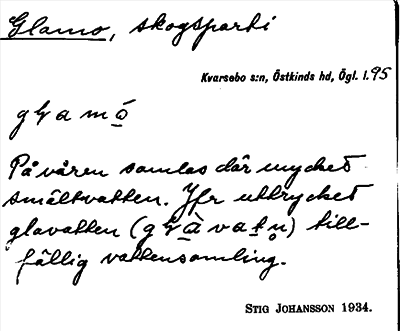 Glamo, skogsparti
Kvarsebo s:n, Östkinds hd, Ögl. l. 95
gɽamo̲
På våren samlas där mycket
smältvatten. Jfr uttrycket
glavatten (gɽà̲vat̲n̥) till-
fällig vattensamling.
STIG JOHANSSON 1934.